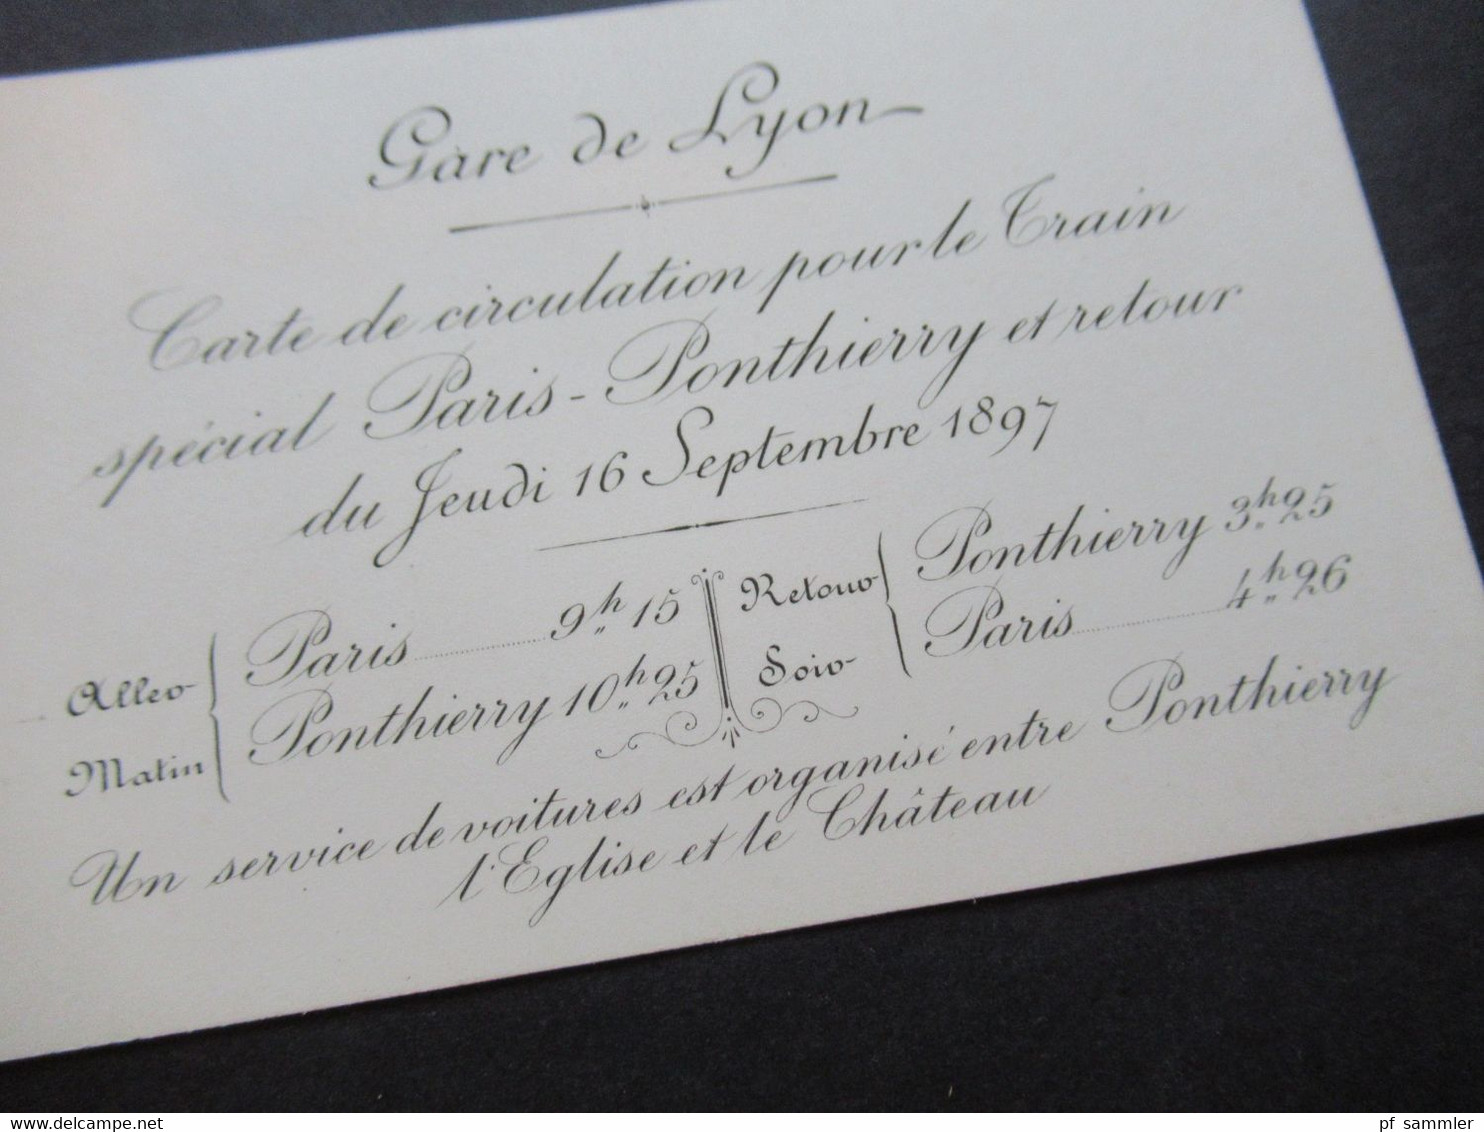 Gare de Lyon
Carte de circulation pour le Train
spécial Paris - Ponthierry et retour
du Jeudi 16 Septembre 1897
Aller Matin
Paris ........ 9h 15
Ponthierry 10h 25
Retour Soir
Ponthierry 3h 25
Paris ........ 4h 26
Un service de voitures est organisé entre Ponthierry
l'Eglise et le Château
www.delcampe.net
pf_sammler